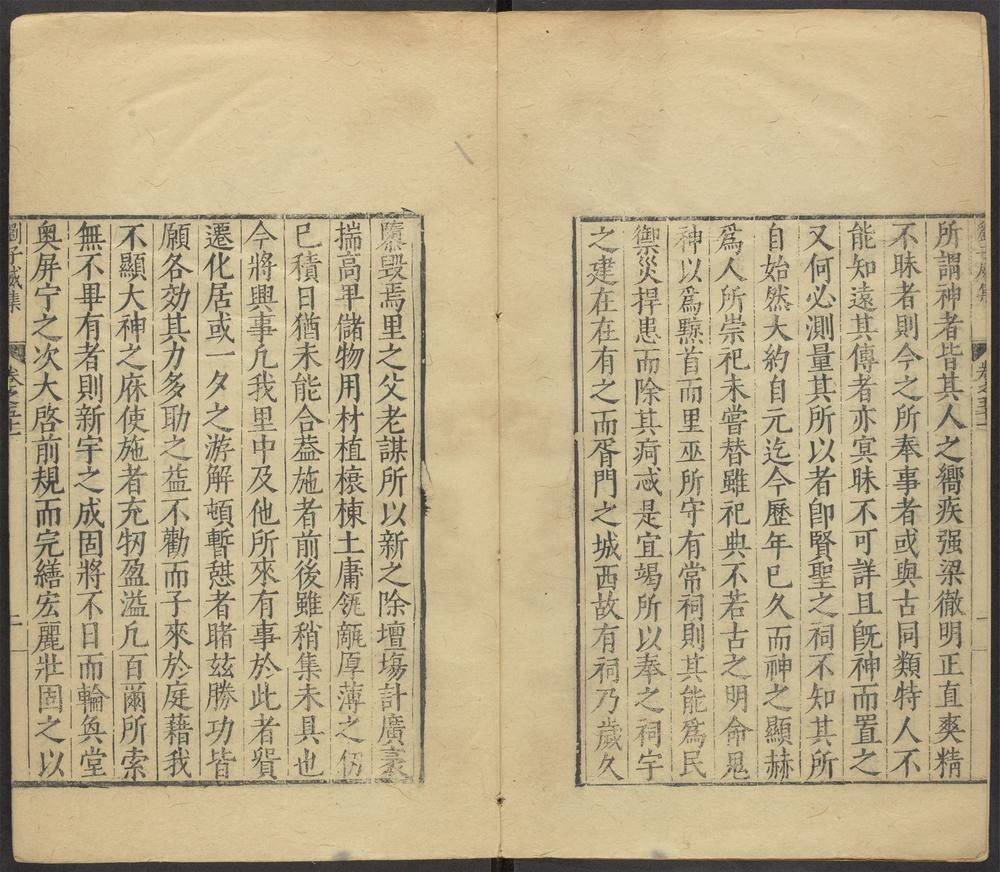 劉子威集 卷之五十一
所謂神者皆其人之嚮疾强梁徹明正直爽精
不昧者則今之所奉事者或與古同類特人不
能知遠其傳者亦寞昧不可詳且旣神而置之
又何必測量其所以者卽賢聖之祠不知其所
自始然大約自元迄今歷年已久而神之顯赫
爲人所崇祀未嘗替雖祀典不若古之明命鬼
神以爲黥首而里巫所守有常祠則其能爲民
禦災捍患而除其疴忒是宜竭所以奉之祠宇
之建在在有之而胥門之城西故有祠乃歲久
隳毀焉里之父老謀所以新之除壇場計廣袤
揣高卑儲物用材植榱棟土庸瓴甋厚薄之仞
已積日猶未能合益施者前後雖稍集未具也
今將興事凢我里中及他所來有事於此者貿
遷化居或一夕之游解頓暫憇者睹茲勝功皆
願各効其力多助之益不勸而子來於庭藉我
不顯大神之庥使施者充牣盈溢凢百爾所索
無不畢有者則新宇之成固將不日而輪奐堂
奥屏宁之次大啓前規而完繕宏麗壯固之以
劉子威集 卷之五十一 二